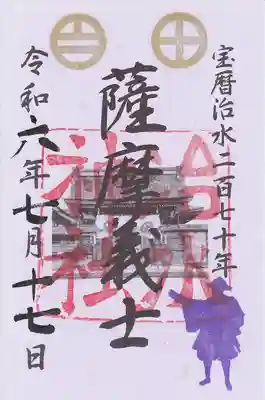 宝暦治水二百七十年
薩摩義士
治水神社
令和六年七月十七日